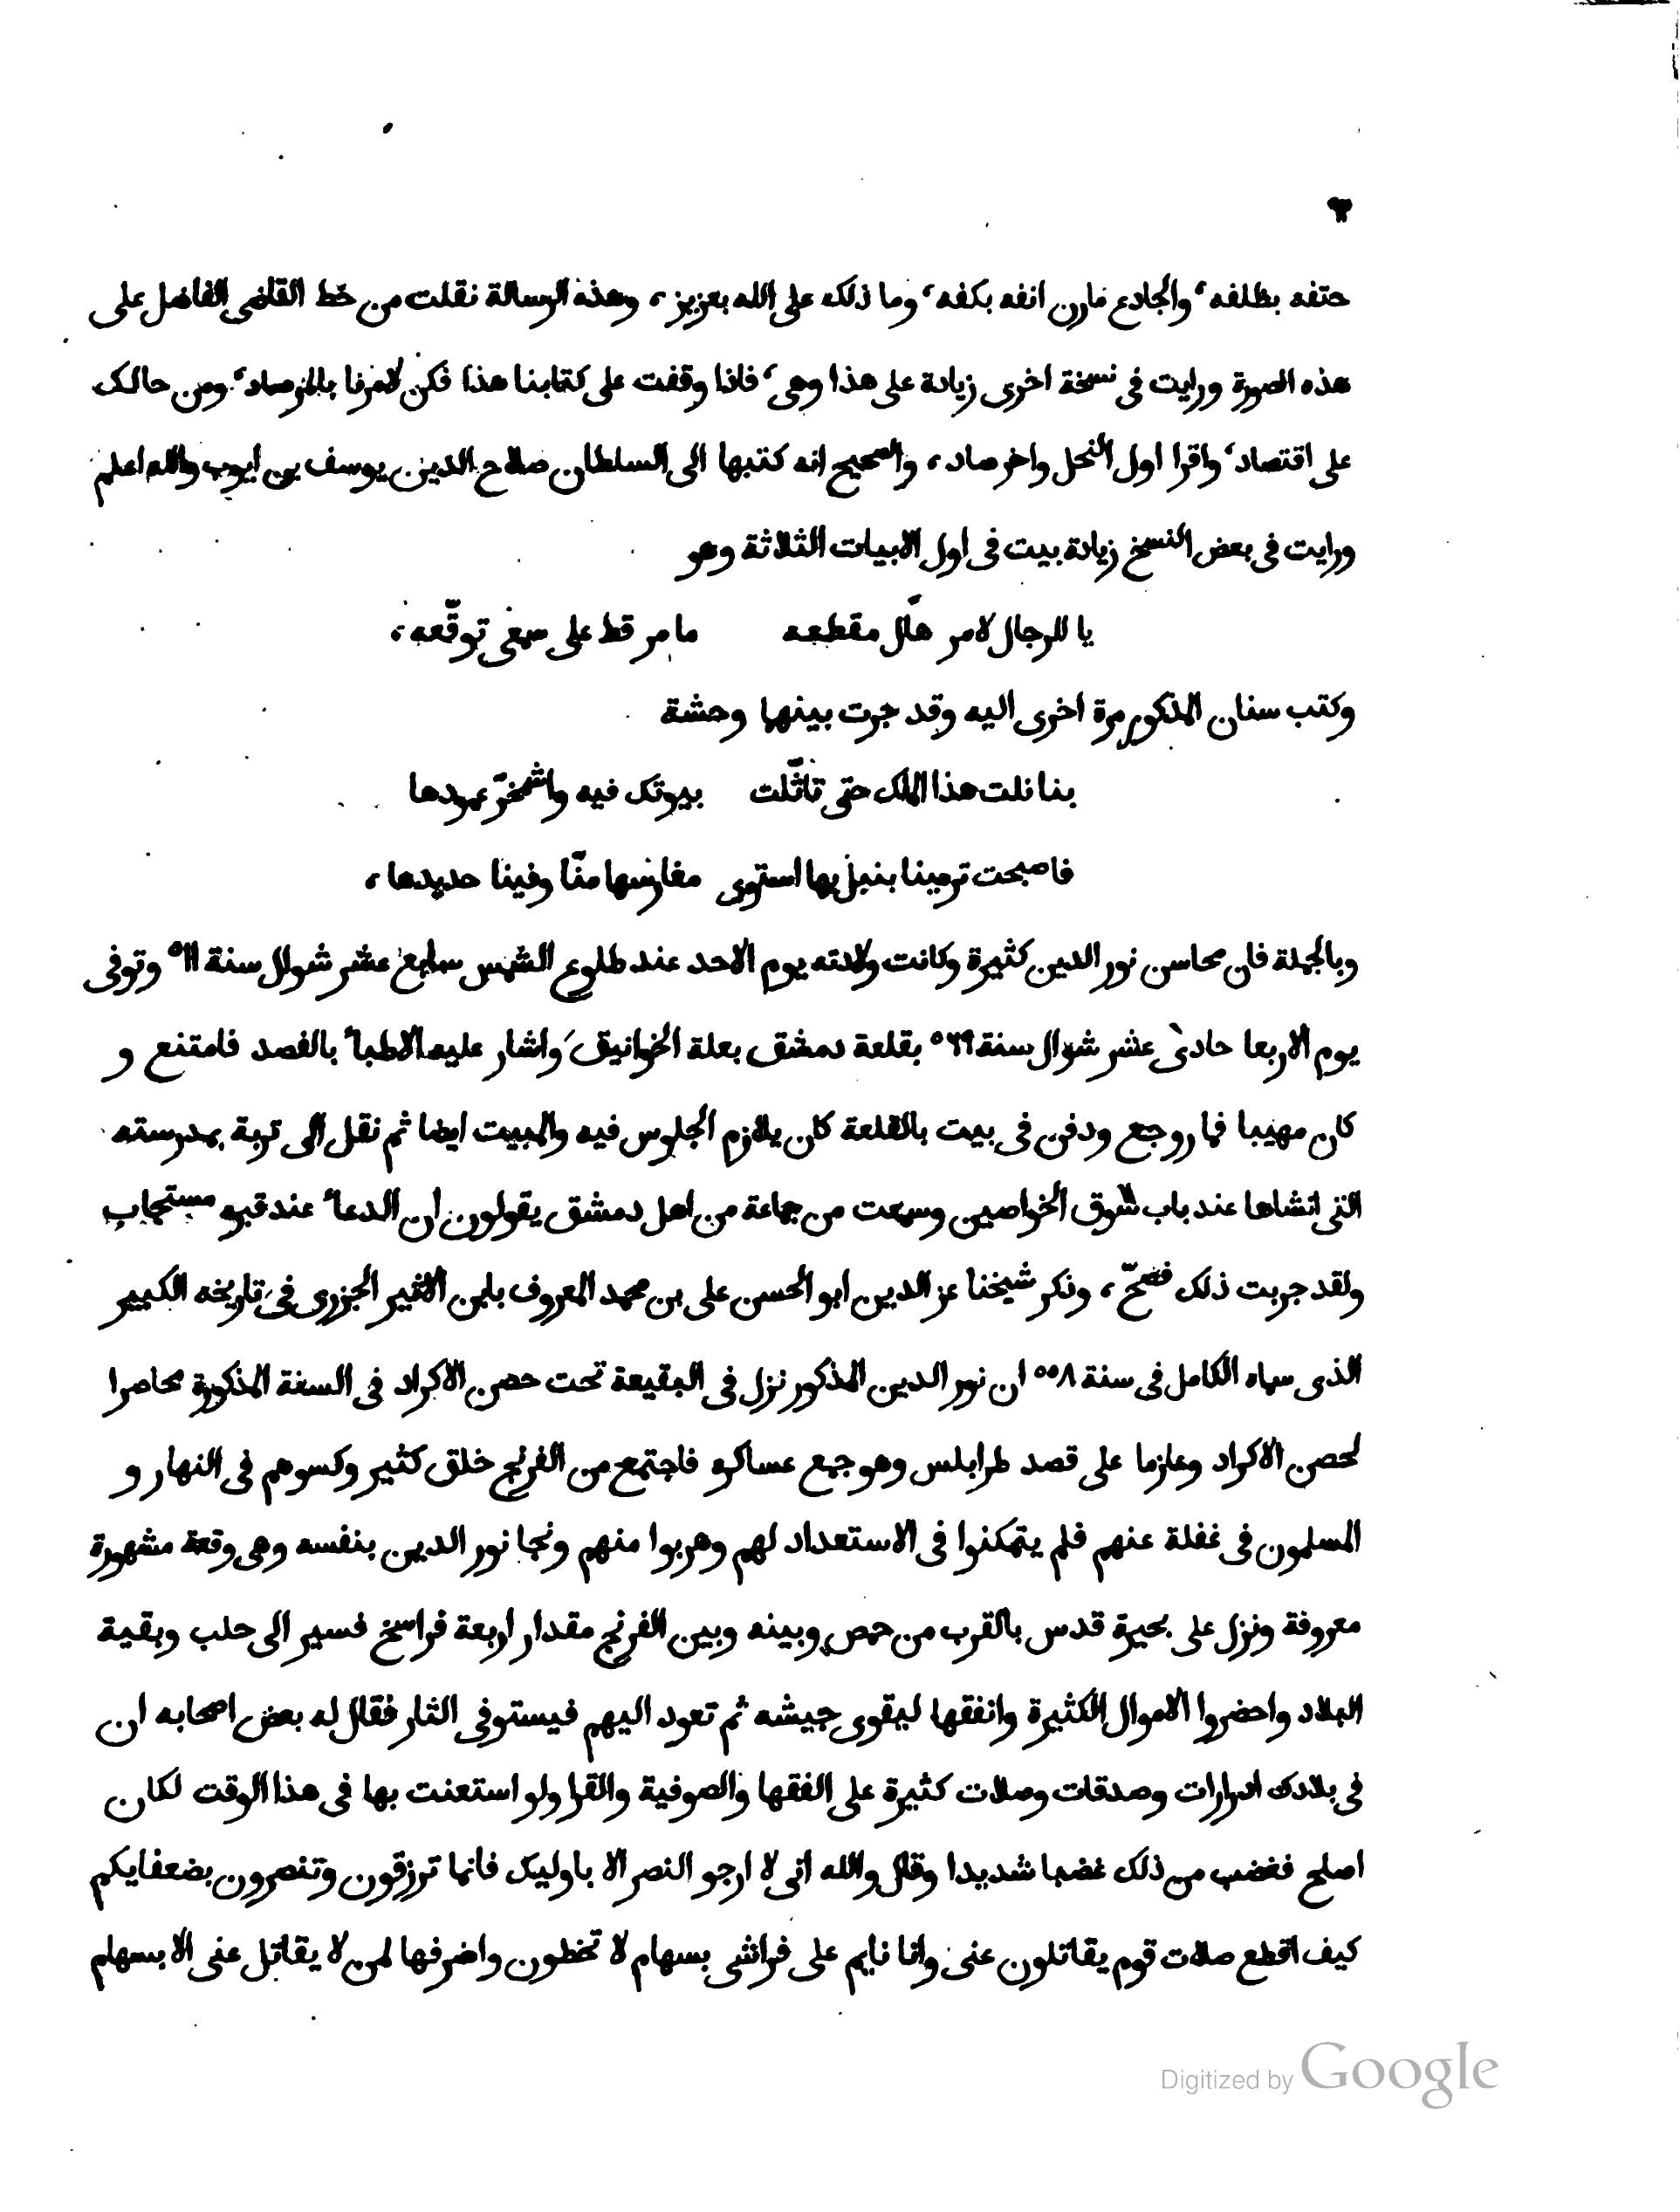 ٣
حتفه بظلفه، والجادع مارن انفه بكفه، وما ذلك على الله بعزيز، وهذه الرسالة نقلت من خط القاضى الفاضل على
هذه الصورة ورايت فى نسخة اخرى زيادة على هذا وهى، فاذا وقفت على كتابنا هذا فكن لامرنا بالمرصاد، ومن حالك
على اقتصاد، واقرا اول النحل واخر صاد، والصحيح انه كتبها الى السلطان صلاح الدين يوسف بن ايوب والله اعلم
ورايت فى بعض النسخ زيادة بيت فى اول الابيات الثلاثة وهو
يا للرجال لامر هال مقطعه ما مر قط على سمعى توقّعه،
وكتب سنان المذكور مرة اخرى اليه وقد جرت بينهما وحشة
بنا نلت هذا الملك حتى تاثّلت بيوتك فيه واشمخرّ عمودها
فاصبحت ترمينا بنبل بها استوى مغارسها منّا وفينا حديدها،
وبالجملة فان محاسن نور الدين كثيرة وكانت ولادته يوم الاحد عند طلوع الشمس سابع عشر شوال سنة ٥١١ وتوفى
يوم الاربعا حادى عشر شوال سنة ٥٦٩ بقلعة دمشق بعلة الخوانيق واشار عليه الاطبا بالفصد فامتنع و
كان مهيبا فما روجع ودفن فى بيت بالقلعة كان يلازم الجلوس فيه والمبيت ايضا ثم نقل الى تربة بمدرسته
التى انشاها عند باب سوق الخواصين وسمعت من جماعة من اهل دمشق يقولون ان الدعا عند قبره مستجاب
ولقد جربت ذلك فصحّ، وذكر شيخنا عز الدين ابو الحسن على بن محمد المعروف بابن الاثير الجزرى فى تاريخه الكبير
الذى سماه الكامل فى سنة ٥٥٨ ان نور الدين المذكور نزل فى البقيعة تحت حصن الاكراد فى السنة المذكورة محاصرا
لحصن الاكراد وعازما على قصد طرابلس وهو جمع عساكره فاجتمع من الفرنج خلق كثير وكسوهم فى النهار و
المسلمون فى غفلة عنهم فلم يتمكنوا فى الاستعداد لهم وهربوا منهم ونجا نور الدين بنفسه وهى وقعة مشهورة
معروفة ونزل على بحيرة قدس بالقرب من حمص وبينه وبين الفرنج مقدار اربعة فراسخ فسير الى حلب وبقية
البلاد واحضروا الاموال الكثيرة وانفقها ليقوى جيشه ثم تعود اليهم فيستوفى الثار فقال له بعض اصحابه ان
فى بلادك ادرارات وصدقات وصلات كثيرة على الفقها والصوفية والقرا ولو استعنت بها فى هذا الوقت لكان
اصلح فغضب من ذلك غضبا شديدا وقال والله انى لا ارجو النصر الا باوليك فانما ترزقون وتنصرون بضعفايكم
كيف اقطع صلات قوم يقاتلون عنى وانا نايم على فراشى بسهام لا تخطون واضرفها لمن لا يقاتل عنى الا بسهام
Digitized by Google